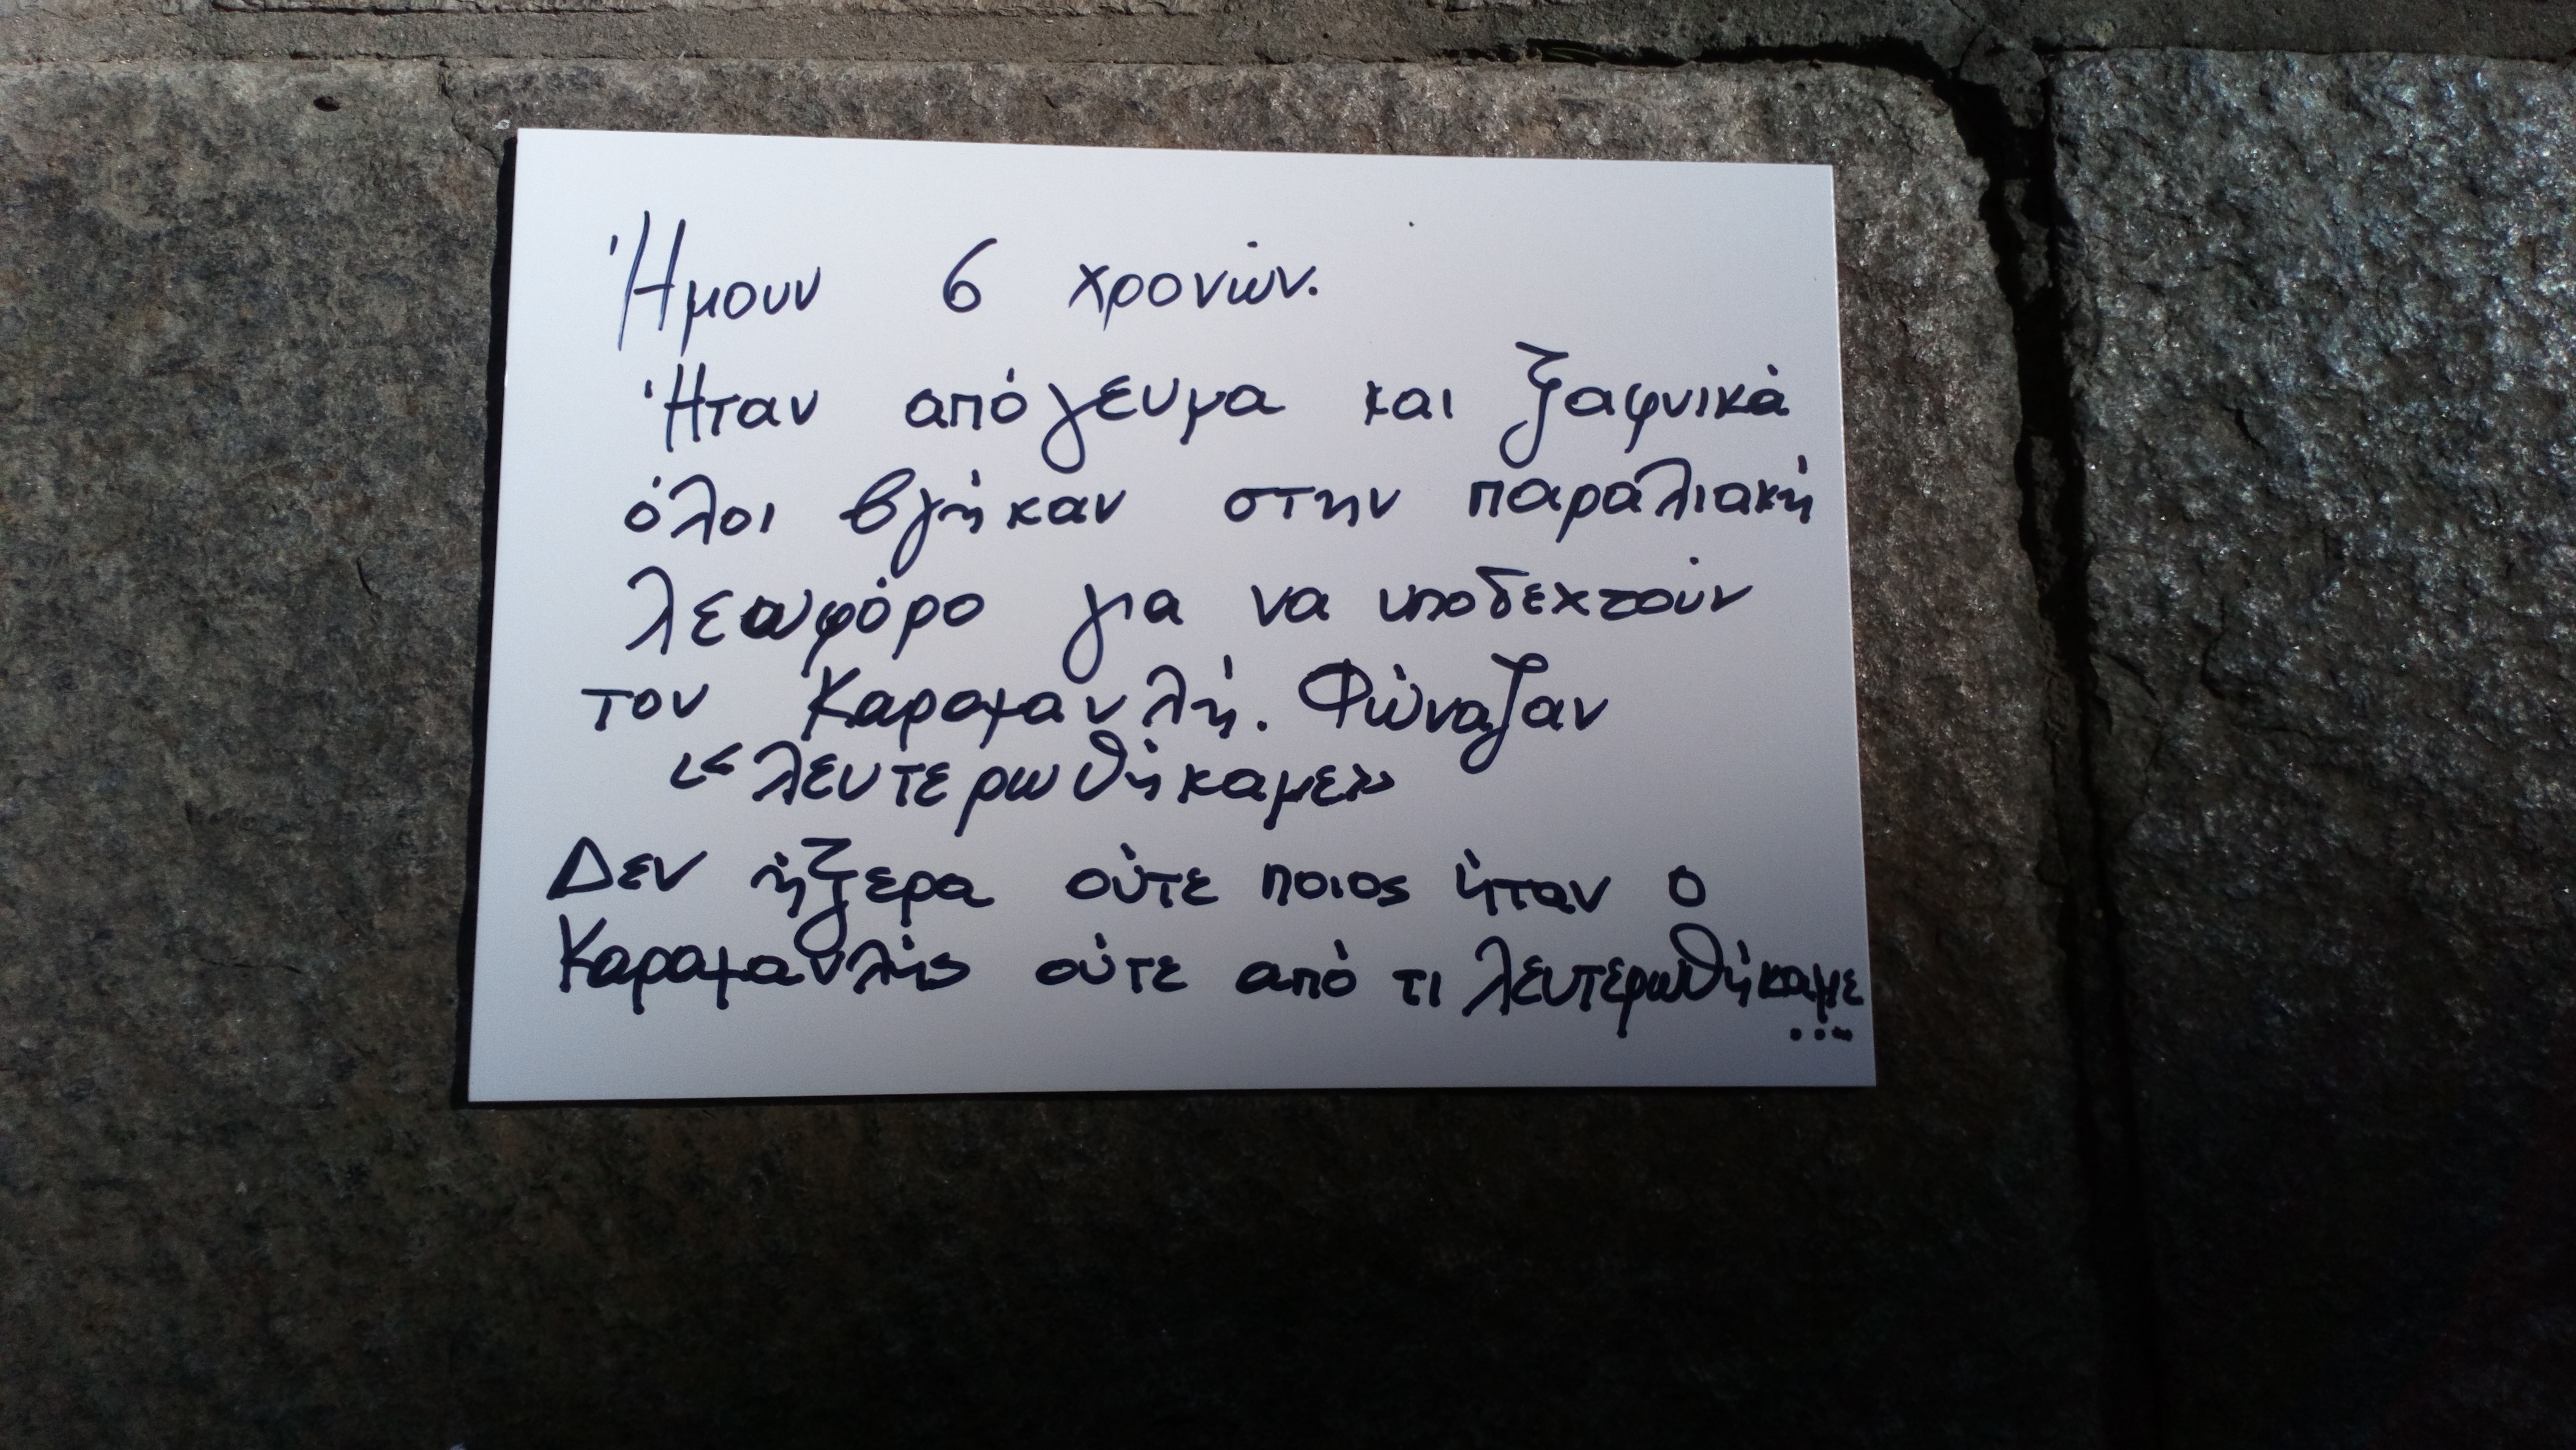 Ήμουν 6 χρονών.
Ήταν απόγευμα και ξαφνικά
όλοι βγήκαν στην παραλιακή
λεωφόρο για να υποδεχτούν
τον Καραμανλή. Φώναξαν
«λευτερωθήκαμε»
Δεν ήξερα ούτε ποιος ήταν ο
Καραμανλής ούτε από τι λευτερωθήκαμε
...